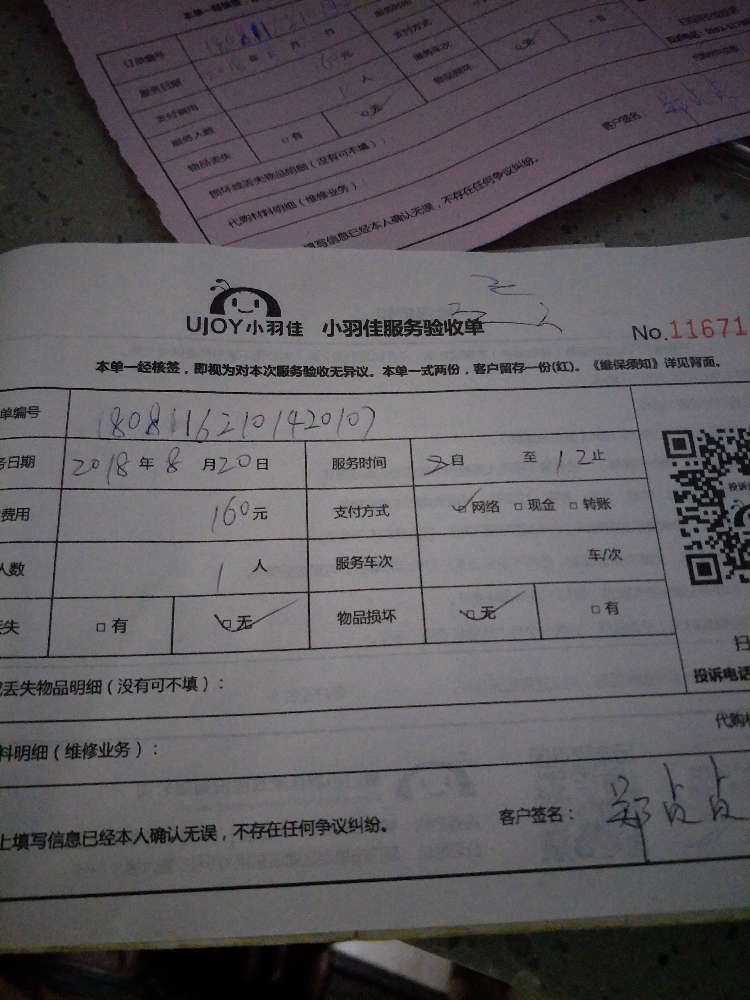 本单一经核签，
订单编号
服务日期
支付费用 元 支付方式
服务人数 人 服务车次
物品丢失 □有 □无 物品损坏 □无
损坏或丢失物品明细（没有可不填）：
代购材料明细（维修业务）： 客户签名：
填写信息已经本人确认无误，不存在任何争议纠纷。
UJOY小羽佳 小羽佳服务验收单
No.11671
本单一经核签，即视为对本次服务验收无异议。本单一式两份，客户留存一份(红)。《维保须知》详见背面。
单编号 18081162101420107
务日期 2018年8月20日 服务时间 自 至12止
费用 160元 支付方式 □网络 □现金 □转账
人数 1人 服务车次 车/次
丢失 □有 □无 物品损坏 □无 □有
投诉
扫
投诉电话
丢失物品明细（没有可不填）：
料明细（维修业务）： 代购
上填写信息已经本人确认无误，不存在任何争议纠纷。 客户签名：郑贞贞